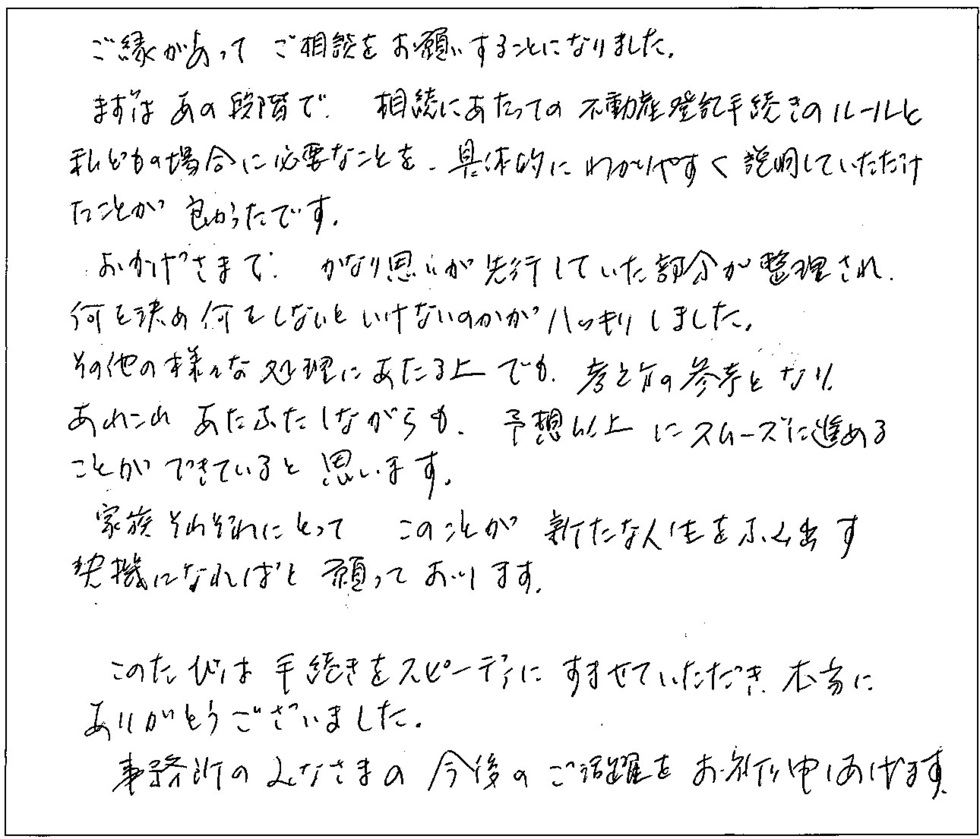 ご縁があって ご相談をお願いすることになりました。
まずはあの段階で、相続にあたっての不動産登記手続きのルールと
私どもの場合に必要なことを、具体的にわかりやすく説明していただけ
たことが良かったです。
おかげさまで、かなり思いが先行していた部分が整理され、
何を決め何をしないといけないのかがハッキリしました。
その他の様々な処理にあたる上でも、考え方の参考となり、
あれこれあたふたしながらも、予想以上にスムーズに進める
ことができていると思います。
家族それぞれにとって このことが新たな人生をふみ出す
契機になればと願っております。
このたびは手続きをスピーディにすませていただき、本当に
ありがとうございました。
事務所のみなさまの今後のご活躍をお祈り申しあげます。